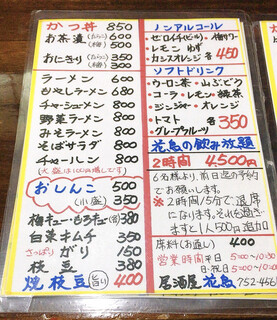 かつ丼 850
お茶漬 (たらこ) 600
(梅) 500
おにぎり (たらこ) 350
(梅) 300
ラーメン 600
もやしラーメン 680
チャーシューメン 800
野菜ラーメン 800
みそラーメン 800
そばサラダ 800
チャーハン 800
(大盛は100円増しです)
おしんこ 500
(小盛) 350
梅キュー・もろキュー(各) 380
白菜キムチ 350
さっぱり がり 150
枝豆 380
焼枝豆 (旨い) 400
ノンアルコール
・ゼロイチ(ビール) ・梅酒ソーダ
・レモン ゆず
・カシスオレンジ 各450
ソフトドリンク
・ウーロン茶 ・山ぶどう
・コーラ ・レモン ・緑茶
・ジンジャー ・オレンジ
・トマト
・グレープフルーツ 各350
花鳥の飲み放題
2時間 4,500円
6名様より、前日迄の予約
でお願いします。
※2時間15分で、退席
になります。それを過ぎ
ますと1人500円追加
席料(お通し) 400
営業時間 平日 5:00~10:30
日・祝日 5:00~10:00
居酒屋 花鳥 752-456